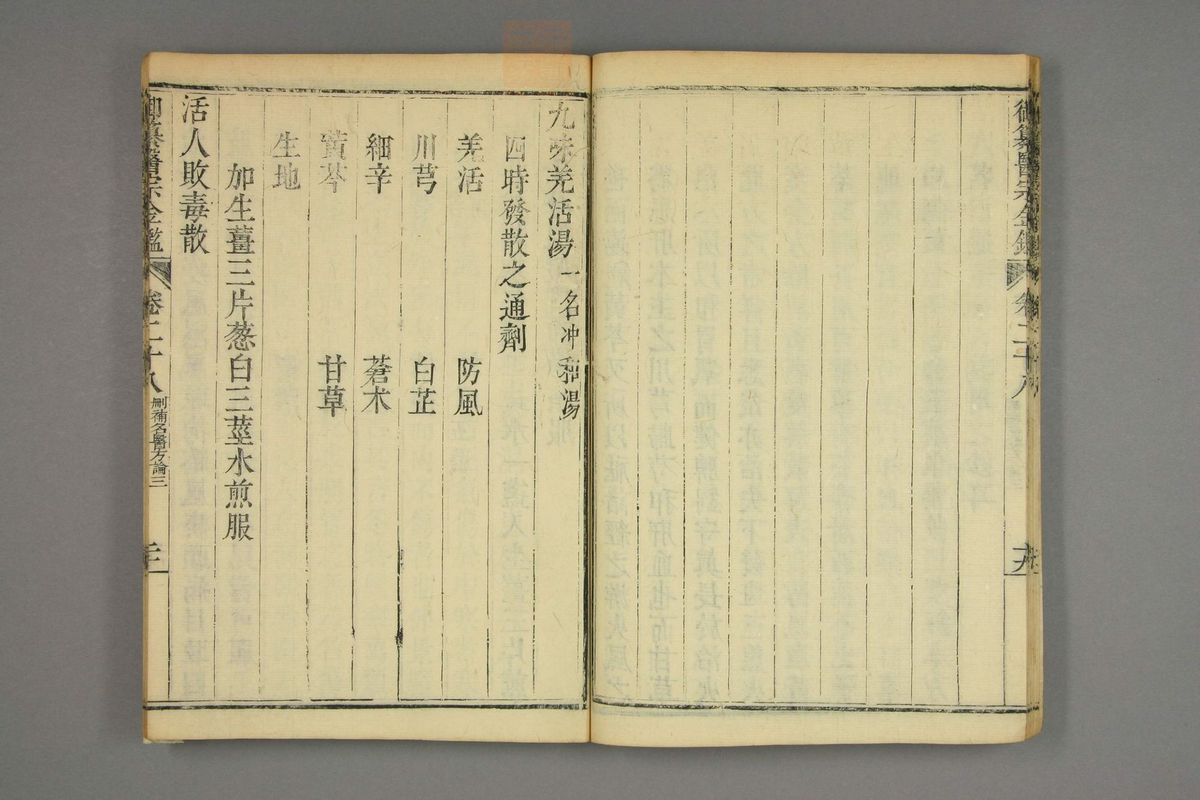 御纂醫宗金鑑 卷二十八
九味羌活湯 一名冲和湯
四時發散之通劑
羌活 防風
川芎 白芷
細辛 蒼朮
黃芩 甘草
生地
加生薑三片葱白三莖水煎服
活人敗毒散
御纂醫宗金鑑 卷二十八 刪補名醫方論三